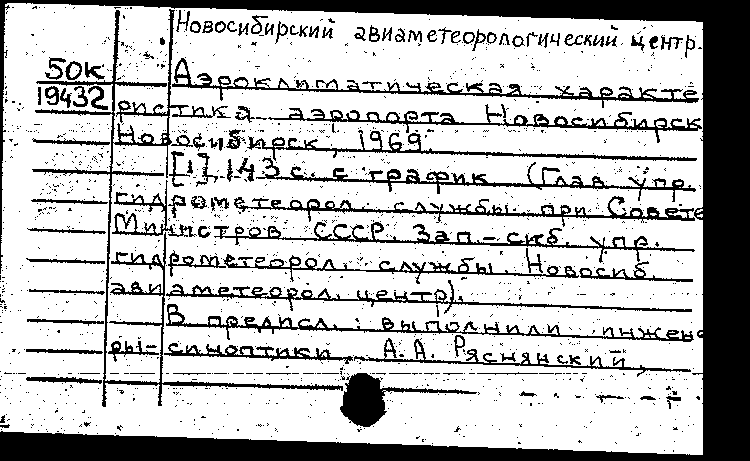 Новосибирский авиаметеорологический центр.
50к
19432
Аэроклиматическая характе
ристика аэропорта Новосибирск
Новосибирск, 1969.
[1], 143 с. с график (Глав. упр.
гидрометеорол. службы при Совете
Министров СССР. Зап-сиб. упр.
гидрометеорол. службы. Новосиб.
авиаметеорол. центр).
В предисл.: выполнили инжене
ры-синоптики А.А. Ряснянский,